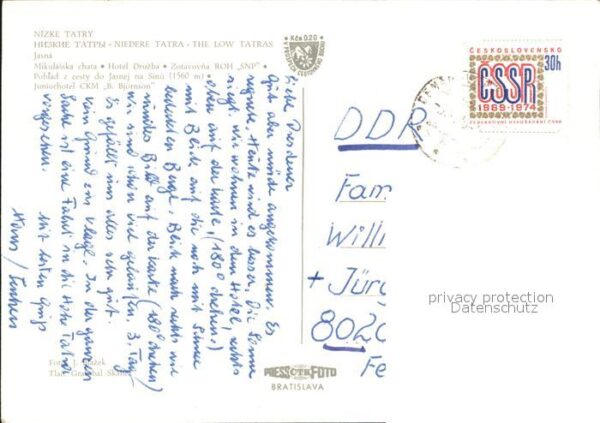 NÍZKE TATRY
НИЗКИЕ ТАТРЫ - NIEDERE TATRA - THE LOW TATRAS
Jasná
Mikulášska chata • Hotel Družba • Zotavovňa ROH „SNP" •
Pohľad z cesty do Jasnej na Sinú (1560 m) •
Juniorhotel CKM „B. Björnson"
Kčs 0,20
Liebe Dresdener
Gut aber müde angekommen. Es
regnete. Heute wird es besser, die Sonne
siegt. Wir wohnen in dem Hotel, rechts
oben auf der Karte, (180° drehen)
mit Blick auf die noch mit Schnee
bedeckten Berge. Blick nach rechts wie
Bild auf der Karte (180° drehen)
Wir sind schon viel gelaufen. 3. Tag
Es gefällt uns alles sehr gut.
Kein Grund zur Klage. In der ganzen
Sache ist eine Fahrt in die Hohe Tatra
vorgesehen.
Mit besten Grüß
Hans /
ČESKOSLOVENSKO
30h
ČSSR
1969-1974
DDR
Fam
Willi
+ Jürg
802
Fe
privacy protection
Datenschutz
PRESSFOTO
BRATISLAVA